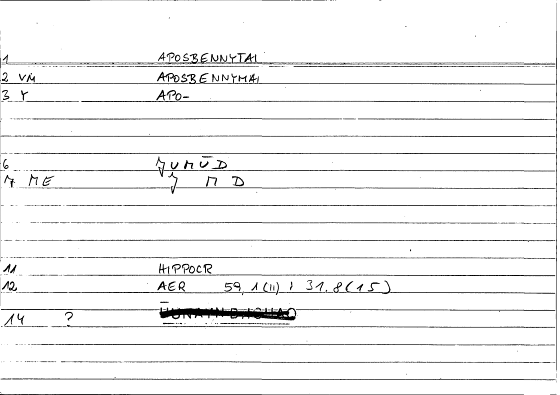 1 APOSBENNYTAI
2 VM APOSBENNYMAI
3 Y APO-
6 ʒUMŪD
7 ME ʒ M D
11 HIPPOCR
12 AER 59,1(11) ; 31.8(15)
14 ?